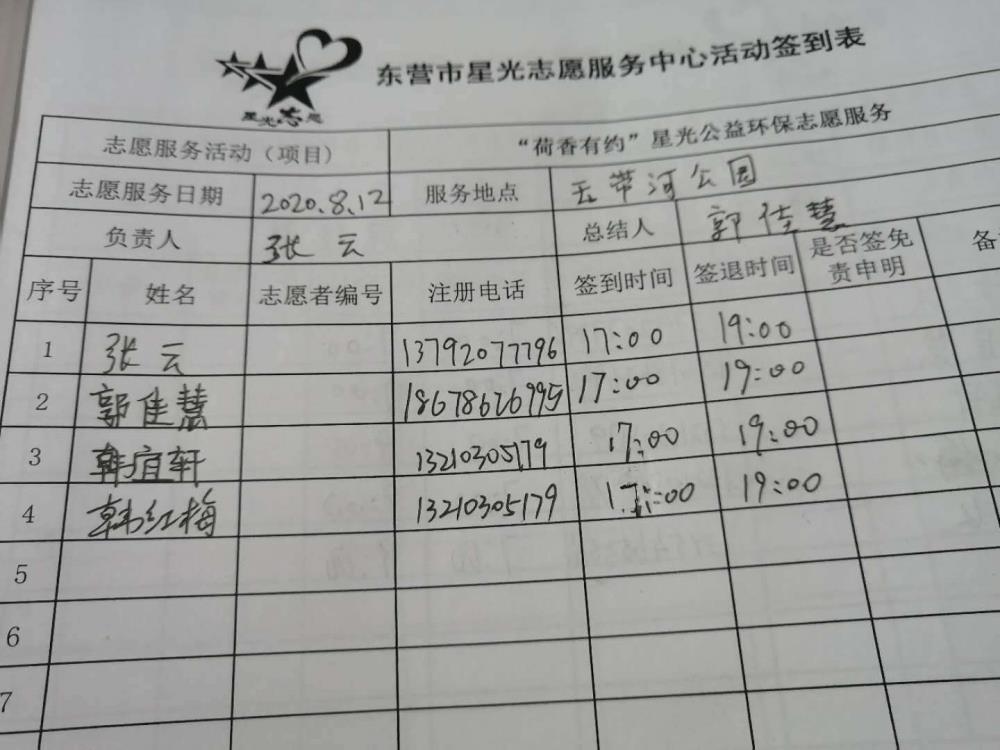 东营市星光志愿服务中心活动签到表
星光志愿
志愿服务活动（项目） “荷香有约”星光公益环保志愿服务
志愿服务日期 2020.8.12 服务地点 玉带河公园
负责人 张云 总结人 郭佳慧
序号 姓名 志愿者编号 注册电话 签到时间 签退时间 是否签免责申明 备
1 张云 13792077796 17:00 19:00
2 郭佳慧 18678626995 17:00 19:00
3 韩宜轩 13210305179 17:00 19:00
4 韩红梅 13210305179 17:00 19:00
5
6
7